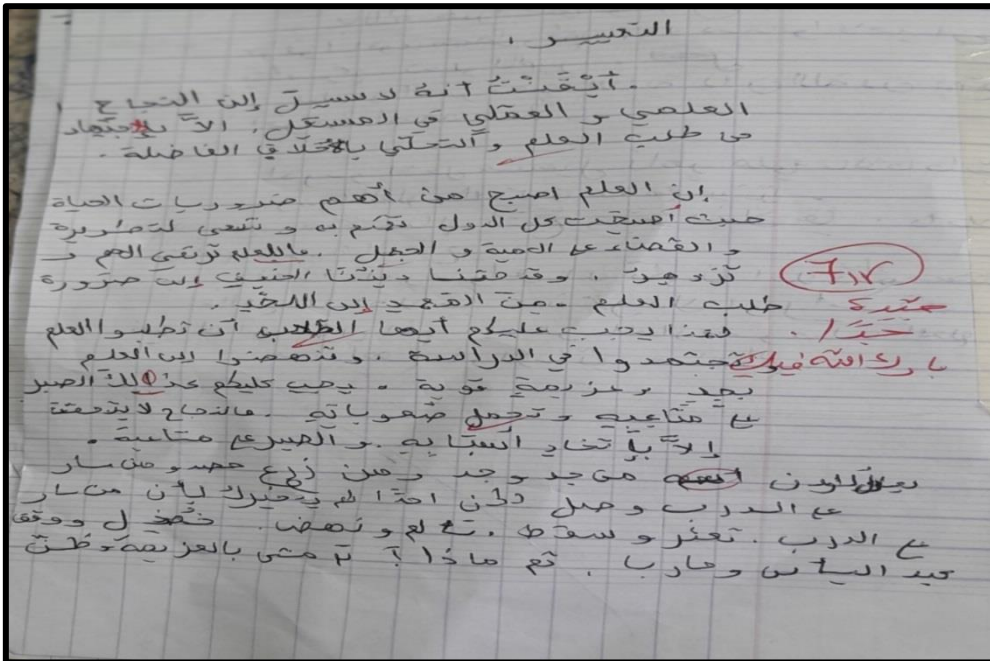 التعبير .
أيقنت أنه لا سبيل إلى النجاح
العلمي و العملي في المستقبل . الا بالاجتهاد
في طلب العلم و التحلي بالاخلاق الفاضلة .
إن العلم اصبح من أهم ضروريات الحياة
حيث أصبحت كل الدول تهتم به و تسعى لتطويره
و القضاء على الامية و الجهل . فبالعلم ترتقي الامم و
تزدهر . وقد حثنا ديننا الحنيف إلى ضرورة
طلب العلم . من المهد إلى اللحد .
لهذا يجب عليكم أيها الطلاب أن تطلبوا العلم
تجتهدوا في الدراسة . وتنهضوا إلى العلم
بجد وعزيمة قوية . يجب عليكم كذلك الصبر
على متاعبه وتحمل صعوباته . فالنجاح لا يتحقق
إلا باتخاد أسبابه . و الصبر على متاعبه .
يقولون من جد وجد ومن زرع حصد ومن سار
على الدرب وصل لكن احدا لم يخبرك بأن من سار
على الدرب . تعثر وسقط . تألم ونهض . ووقف
اليأس وحارب . ثم ماذا ؟ مشى بالعزيمة
جيدة
جدا / .
بارك الله فيك